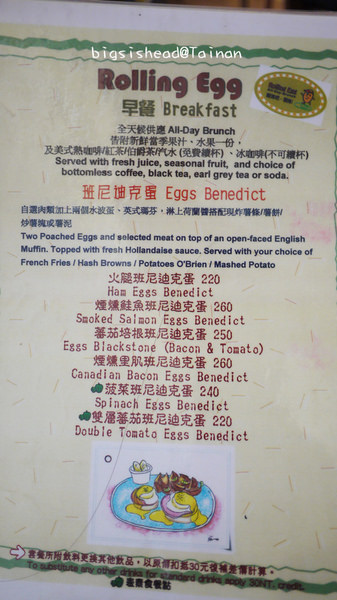 bigsishead@Tainan
Rolling Egg
早餐 Breakfast
全天候供應 All-Day Brunch
皆附新鮮當季果汁、水果一份，
及美式熱咖啡/紅茶/伯爵茶/汽水 (免費續杯) 、冰咖啡(不可續杯)
Served with fresh juice, seasonal fruit, and choice of
bottomless coffee, black tea, earl grey tea or soda.
班尼迪克蛋 Eggs Benedict
自選肉類加上兩個水波蛋、英式瑪芬，淋上荷蘭醬搭配現炸薯條/薯餅/
炒薯塊或薯泥
Two Poached Eggs and selected meat on top of an open-faced English
Muffin. Topped with fresh Hollandaise sauce. Served with your choice of
French Fries / Hash Browns / Potatoes O'Brien / Mashed Potato
火腿班尼迪克蛋 220
Ham Eggs Benedict
煙燻鮭魚班尼迪克蛋 260
Smoked Salmon Eggs Benedict
蕃茄培根班尼迪克蛋 250
Eggs Blackstone (Bacon & Tomato)
煙燻里肌班尼迪克蛋 260
Canadian Bacon Eggs Benedict
菠菜班尼迪克蛋 240
Spinach Eggs Benedict
雙層蕃茄班尼迪克蛋 220
Double Tomato Eggs Benedict
套餐所附飲料更換其他飲品，以原價扣抵30元後補差價計算。
To substitute any other drinks for standard drinks apply 30NT. credit.
表蔬食餐點